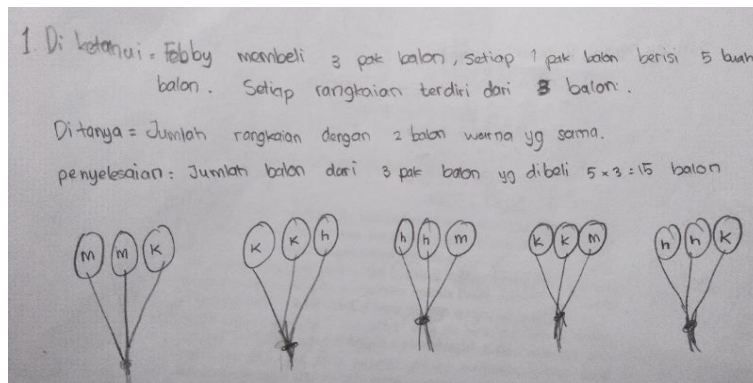 1. Di ketahui = Febby membeli 3 pak balon, Setiap 1 pak balon berisi 5 buah
balon. Setiap rangkaian terdiri dari 3 balon.
Ditanya = Jumlah rangkaian dengan 2 balon warna yg sama.
penyelesaian : Jumlah balon dari 3 pak balon yg dibeli 5 x 3 = 15 balon
m m k k k h h h m k k m h h k